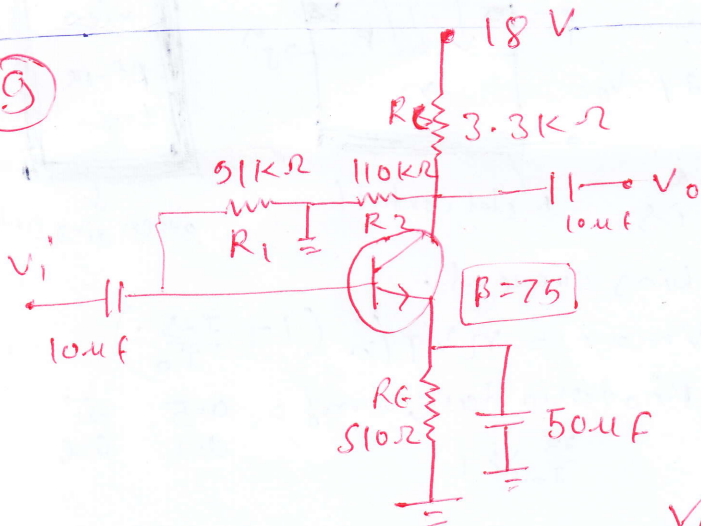 9
18 V
RC 3.3KΩ
91KΩ 110KΩ
R1 R2
Vo
10uf
Vi
10uf
B=75
RE
510Ω
50uf